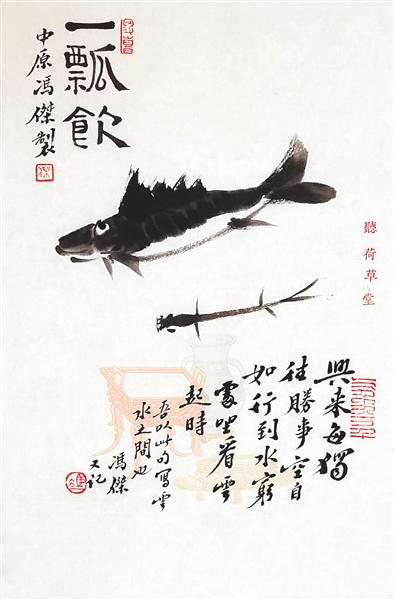 一瓢飲
中原馮傑製
聽荷草堂
興来每獨
往勝事空自
知行到水窮
處坐看雲
起時
吾以此句寫雲
水之間也
馮傑
又記